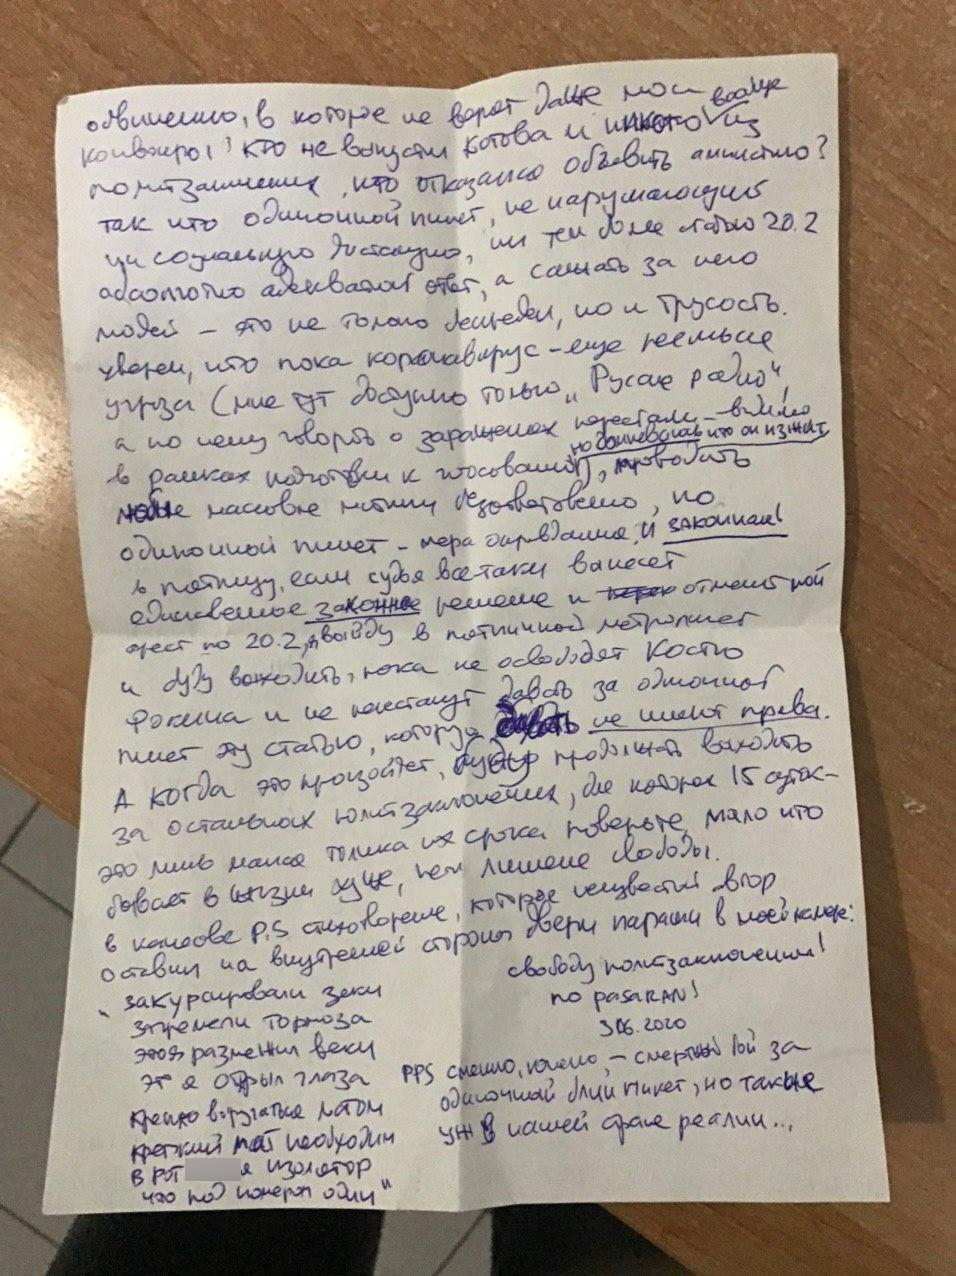 обвинению, в которое не верят даже мои вообще
конвоиры? кто не выпустил Котова и никого из
политзаключенных, кто отказался объявить амнистию?
так что одиночный пикет, не нарушающий
ни социальную дистанцию, ни тем более статью 20.2
абсолютно адекватный ответ, а сажать за него
людей – это не только беспредел, но и трусость.
уверен, что пока коронавирус – еще реальная
угроза (мне тут доступно только „Русское радио",
а по нему говорить о заражениях перестали – видимо
но сомневаюсь что он изжит,
в рамках подготовки к голосованию), проводить
массовые митинги безответственно, но
одиночный пикет – мера оправданная, и законная!
в пятницу, если судья все-таки вынесет
единственное законное решение и отменит мой
арест по 20.2, я выйду в пятничный метропикет
и буду выходить, пока не освободят Костю
Фокина и не перестанут давать за одиночный
пикет эту статью, которую давать не имеют права.
А когда это произойдет, буду продолжать выходить
за остальных политзаключенных, для которых 15 суток –
это лишь малая толика их срока поверьте, мало что
бывает в жизни хуже, чем лишение свободы.
в качестве P.S стихотворение, которое неизвестный автор
оставил на внутренней стороне двери параши в моей камере:
„ закурсировали зеки
загремели тормоза
это я разлепил веки
это я открыл глаза
крепко выругаться матом
крепкий мат необходим
в рот я изолятор
что под номером один"
свободу политзаключенным!
no pasaran!
3 06.2020
PPS смешно, конечно, – смертный бой за
одиночный блин пикет, но такие
уж в нашей стране реалии...